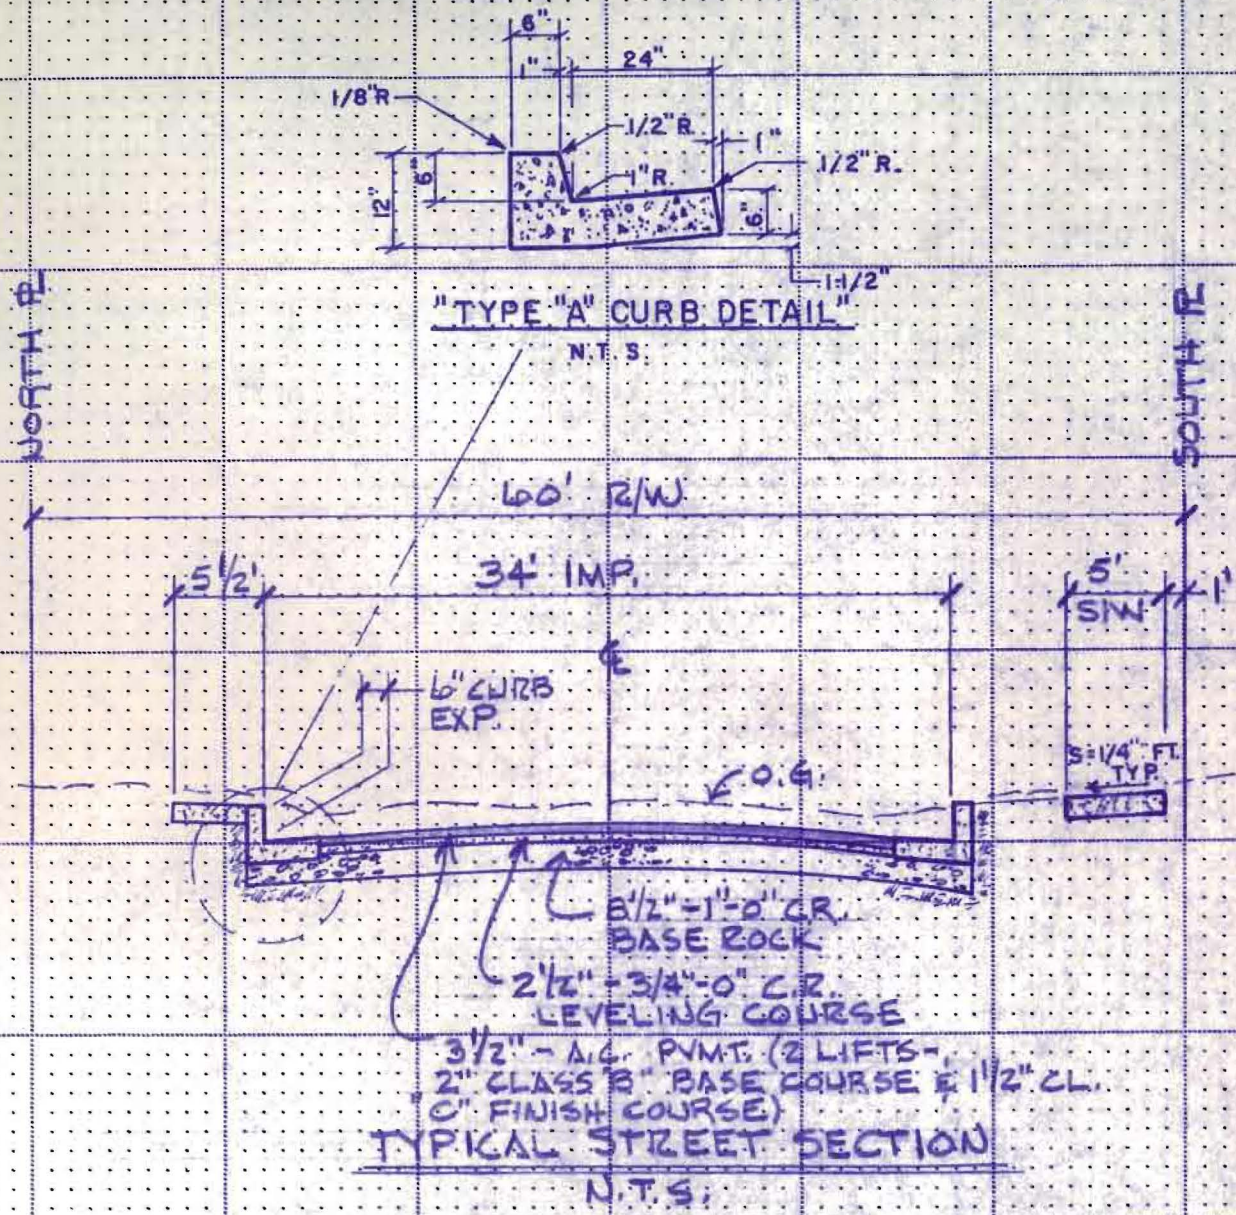 6"
1" 24"
1/8"R
1/2"R.
1"
1/2"R.
6"
12"
1"R.
6"
1-1/2"
"TYPE "A" CURB DETAIL"
N.T.S.
NORTH PL
SOUTH PL
60' R/W
5 1/2'
34' IMP.
5'
S/W
1'
CL
6" CURB
EXP.
O.G.
S=1/4" FT.
TYP.
8 1/2" - 1"-0" C.R.
BASE ROCK
2 1/2" - 3/4"-0" C.R.
LEVELING COURSE
3 1/2" - A.C. PVMT. (2 LIFTS-
2" CLASS "B" BASE COURSE & 1 1/2" CL.
"C" FINISH COURSE)
TYPICAL STREET SECTION
N.T.S.